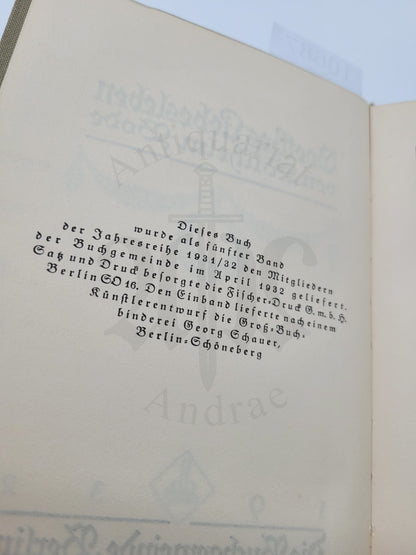 Dieses Buch
wurde als fünfter Band
der Jahresreihe 1931/32 den Mitgliedern
der Buchgemeinde im April 1932 geliefert.
Satz und Druck besorgte die Fischer-Druck G.m.b.H.
Berlin SO 16. Den Einband lieferte nach einem
Künstlerentwurf die Groß-Buch-
binderei Georg Schauer,
Berlin-Schöneberg
Antiquariat
Andrae